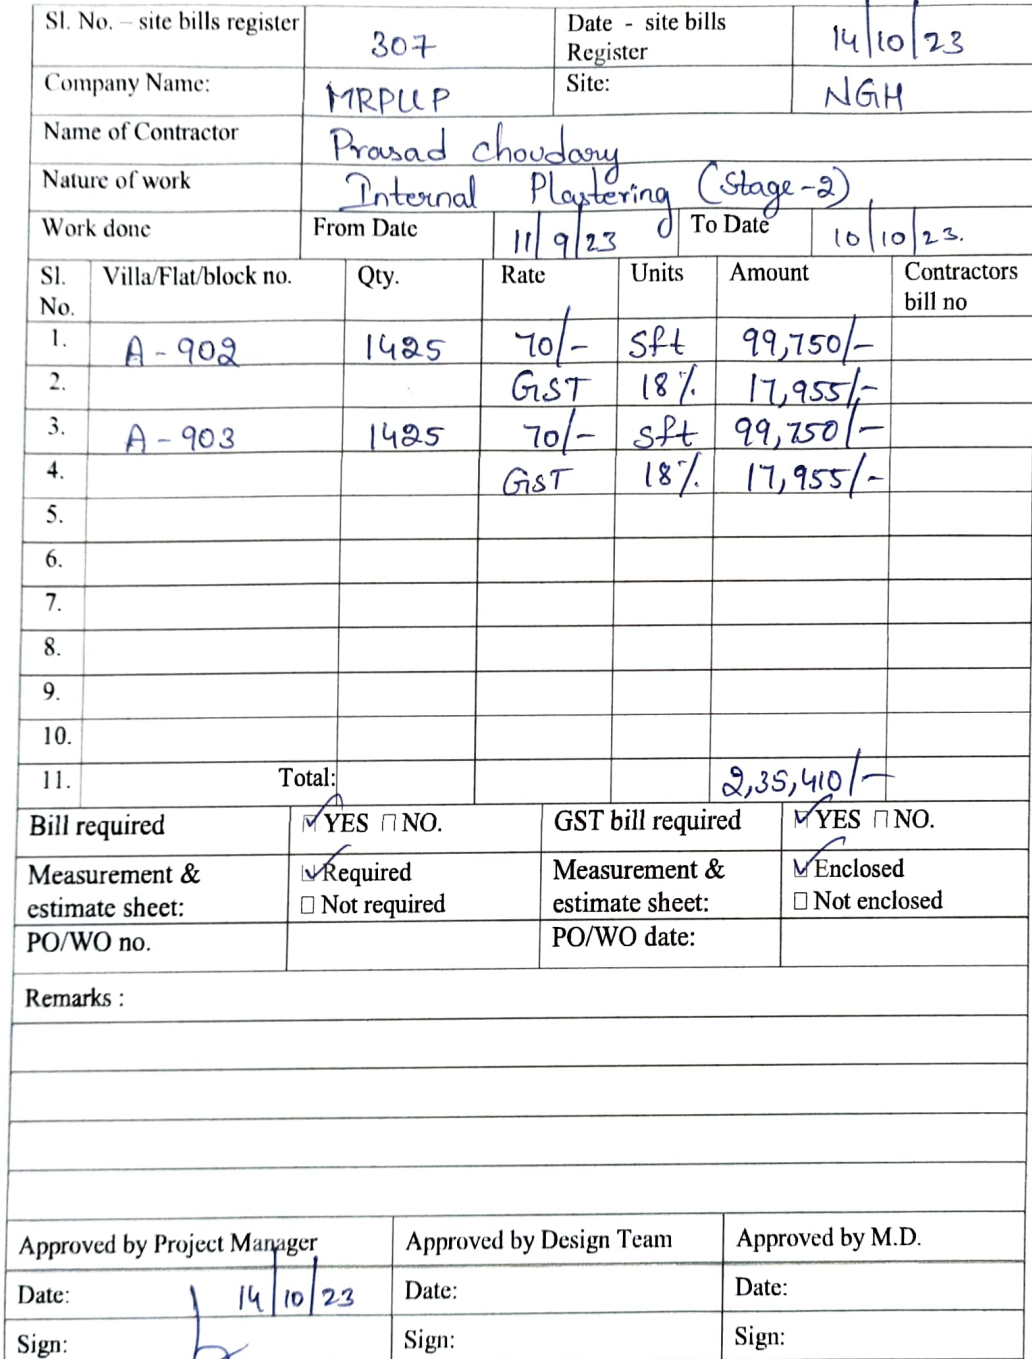 Sl. No. – site bills register 307 Date - site bills Register 14/10/23
Company Name: MRPLLP Site: NGH
Name of Contractor Prasad Choudary
Nature of work Internal Plastering (Stage-2)
Work done From Date 11/9/23 To Date 10/10/23.
Sl. No. Villa/Flat/block no. Qty. Rate Units Amount Contractors bill no
1. A-902 1425 70/- Sft 99,750/-
2. GST 18% 17,955/-
3. A-903 1425 70/- Sft 99,750/-
4. GST 18% 17,955/-
5.
6.
7.
8.
9.
10.
11. Total: 2,35,410/-
Bill required YES NO. GST bill required YES NO.
Measurement & estimate sheet: Required Measurement & estimate sheet: Enclosed
Not required Not enclosed
PO/WO no. PO/WO date:
Remarks :
Approved by Project Manager Approved by Design Team Approved by M.D.
Date: 14/10/23 Date: Date:
Sign: Sign: Sign: